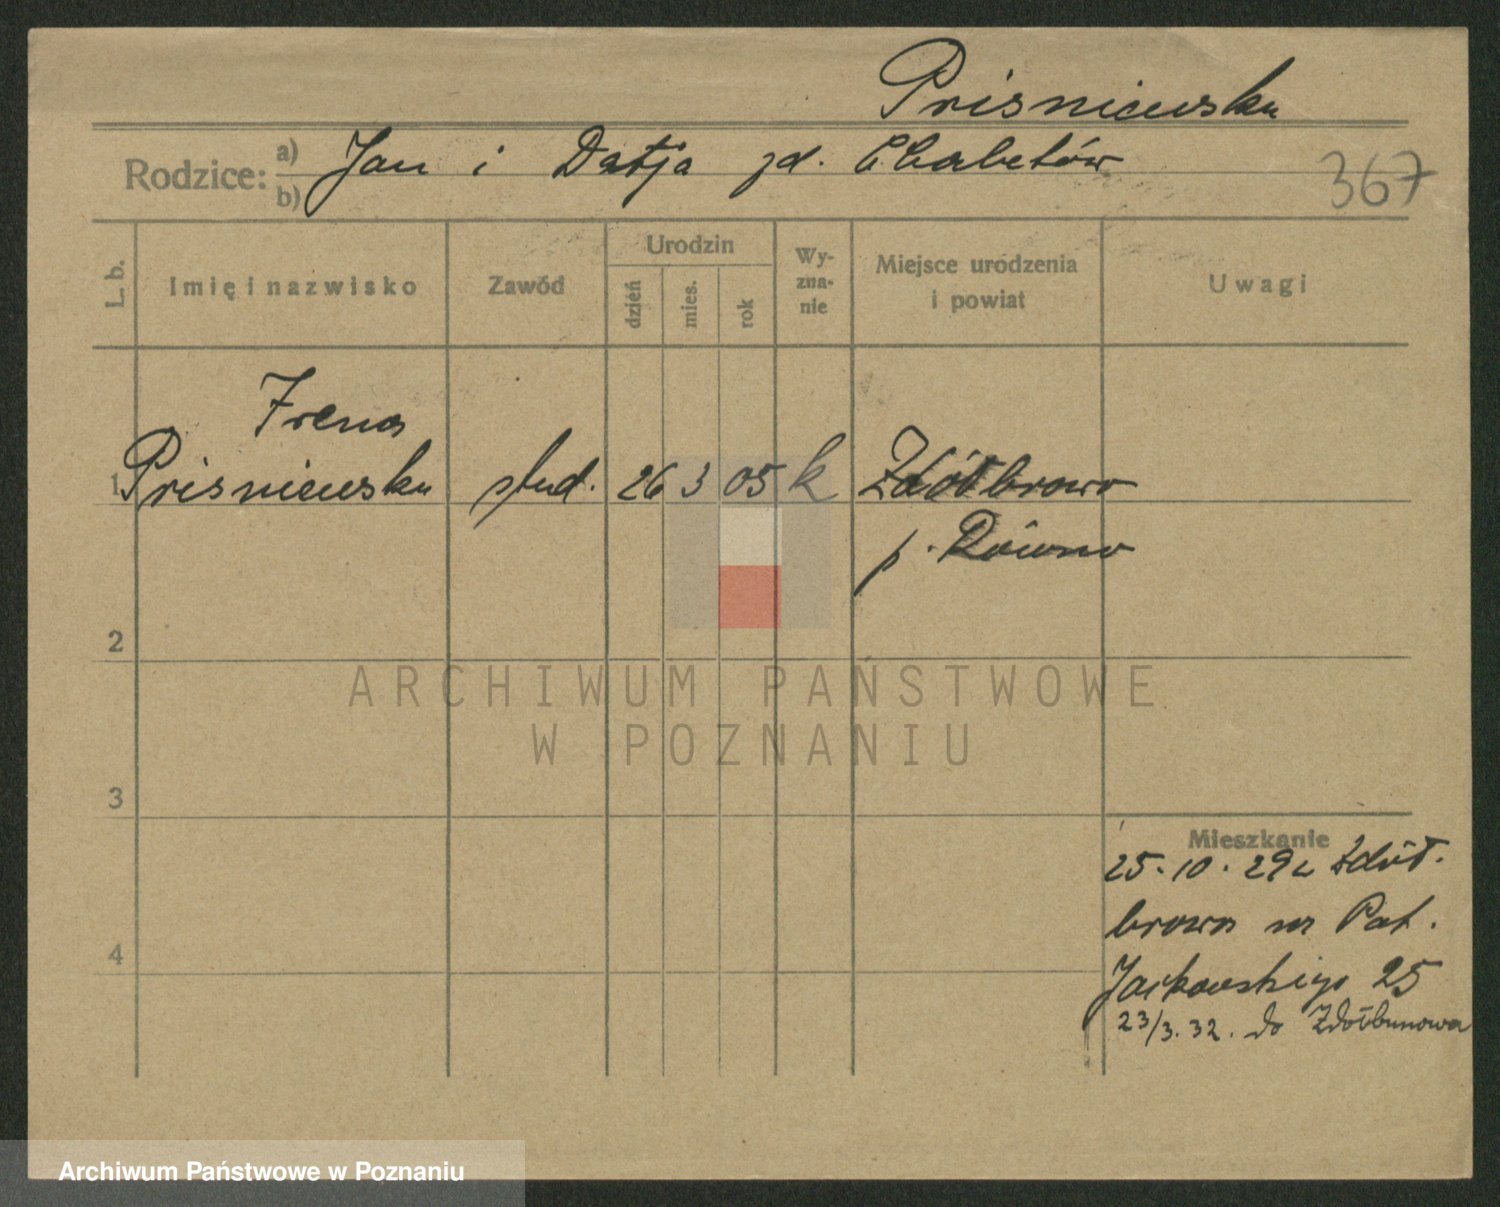 Prisniewska
Rodzice: a) Jan i Datja zd. Chabetów
b)
367
L. b. Imię i nazwisko Zawód Urodzin dzień mies. rok Wyznanie Miejsce urodzenia i powiat Uwagi
Irena
1 Prisniewska stud. 26 3 05 k Zdółbrowo
p. Równo
2
ARCHIWUM PAŃSTWOWE
W POZNANIU
3
Mieszkanie
25.10.29 z Zdół.
browa na Pat.
4
Jackowskiego 25
23/3.32. do Zdołbunowa
Archiwum Państwowe w Poznaniu